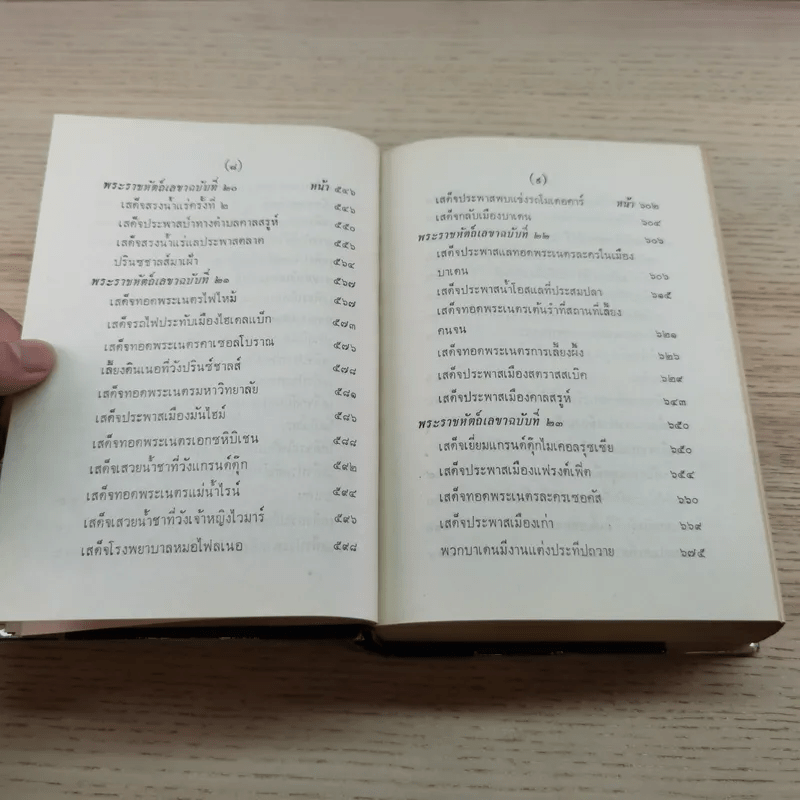 (๘)
พระราชหัตถ์เลขาฉบับที่ ๒๐ หน้า ๕๔๖
เสด็จสรงน้ำแร่ครั้งที่ ๒ ๕๔๖
เสด็จประพาสป่าทางตำบลคาลสรูห์ ๕๕๐
เสด็จสรงน้ำแร่แลประพาสตลาด ๕๕๖
ปรินซชาลส์มาเฝ้า ๕๖๔
พระราชหัตถ์เลขาฉบับที่ ๒๑ ๕๖๗
เสด็จทอดพระเนตรไฟไหม้ ๕๖๗
เสด็จรถไฟประทับเมืองไฮเดลแบ็ก ๕๗๓
เสด็จทอดพระเนตรคาเซอลโบราณ ๕๗๖
เลี้ยงดินเนอที่วังปรินซ์ชาลส์ ๕๗๘
เสด็จทอดพระเนตรมหาวิทยาลัย ๕๘๑
เสด็จประพาสเมืองมันไฮม์ ๕๘๖
เสด็จทอดพระเนตรเอกซหิบิเชน ๕๘๘
เสด็จเสวยน้ำชาที่วังแกรนด์ดุ๊ก ๕๙๒
เสด็จทอดพระเนตรแม่น้ำไรน์ ๕๙๔
เสด็จเสวยน้ำชาที่วังเจ้าหญิงไวมาร์ ๕๙๖
เสด็จโรงพยาบาลหมอไฟลเนอ ๕๙๘
(๙)
เสด็จประพาสทบแข่งรถไมเตอคาร์ หน้า ๖๐๒
เสด็จกลับเมืองบาเดน ๖๐๔
พระราชหัตถ์เลขาฉบับที่ ๒๒ ๖๐๖
เสด็จประพาสแลทอดพระเนตรละครในเมือง
บาเดน ๖๐๖
เสด็จประพาสน้ำโอสแลที่ประสมปลา ๖๑๕
เสด็จทอดพระเนตรเต้นรำที่สถานที่เลี้ยง
คนจน ๖๒๑
เสด็จทอดพระเนตรการเลี้ยงผึ้ง ๖๒๖
เสด็จประพาสเมืองสตราสสเบิค ๖๒๙
เสด็จประพาสเมืองคาลสรูห์ ๖๔๓
พระราชหัตถ์เลขาฉบับที่ ๒๓ ๖๕๐
เสด็จเยี่ยมแกรนด์ดุ๊กไมเคอลรุซเซีย ๖๕๐
เสด็จประพาสเมืองแฟรงค์เฟิต ๖๕๔
เสด็จทอดพระเนตรละครเซอคัส ๖๖๐
เสด็จประพาสเมืองเก่า ๖๖๙
พวกบาเดนมีงานแต่งประทีปถวาย ๖๗๕